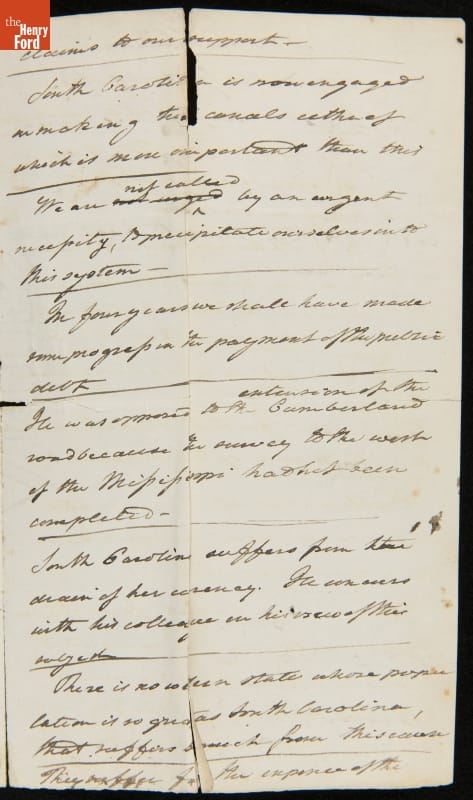 the
Henry
Ford
claims to our support —
South Carolina is now engaged
in making two canals either of
which is more important than this
not called
We are not urged by an urgent
necessity, to precipitate ourselves into
this system —
In four years we shall have made
some progress in the payment of the public
debt
extension of the
He was opposed to the Cumberland
road because the survey to the west
of the Missisippi had not been
completed —
South Carolina suffers from the
drain of her curency. He concurs
with his colleague in his view of this
subject
There is no state whose popu
lation is so great as South Carolina,
that suffers so much from this cause
They suffer the expence of the